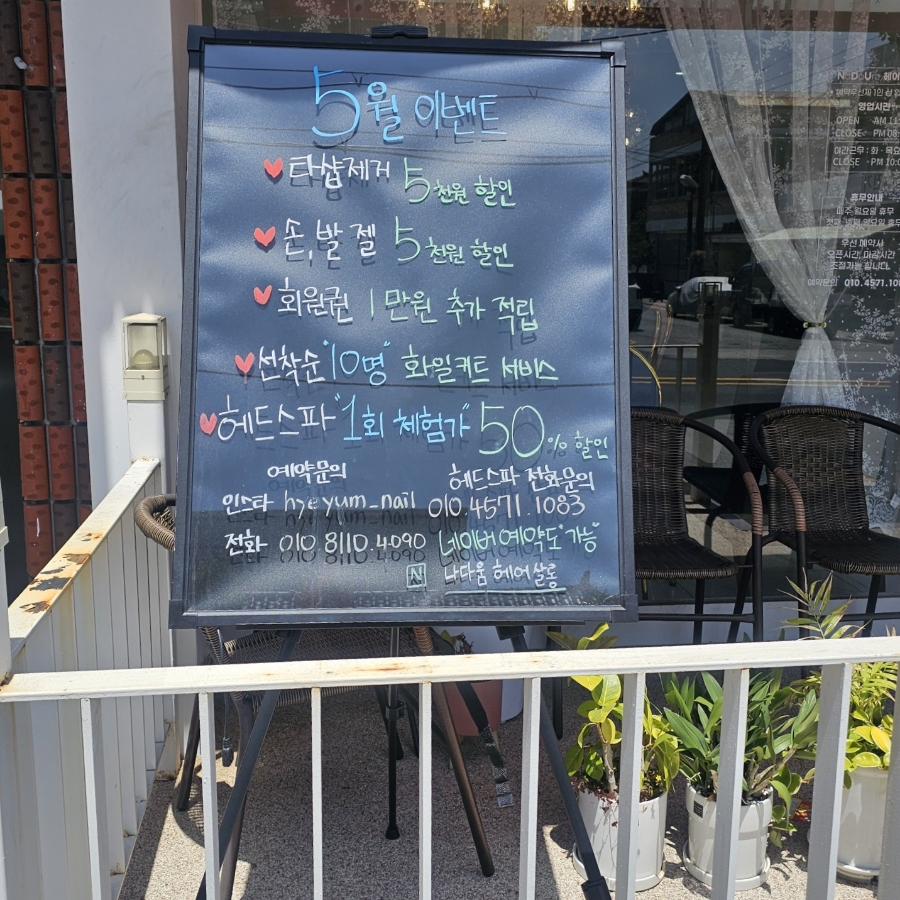 5월 이벤트
타샵제거 5천원 할인
손,발 젤 5천원 할인
회원권 1만원 추가 적립
선착순 "10명" 화일커트 서비스
헤드스파 "1회 체험가" 50% 할인
예약문의
인스타 hye yum_nail
전화 010 8110.4090
헤드스파 전화문의
010.4571.1083
네이버 예약도 "가능"
나다움 헤어살롱
영업시간
OPEN AM 11
CLOSE PM 08
야간근무 : 화 · 목요
CLOSE · PM 10:0
휴무안내
매주 월요일 휴무
우선 예약시
오픈시간, 마감시간
조절가능 합니다.
예약문의 010.4571.108